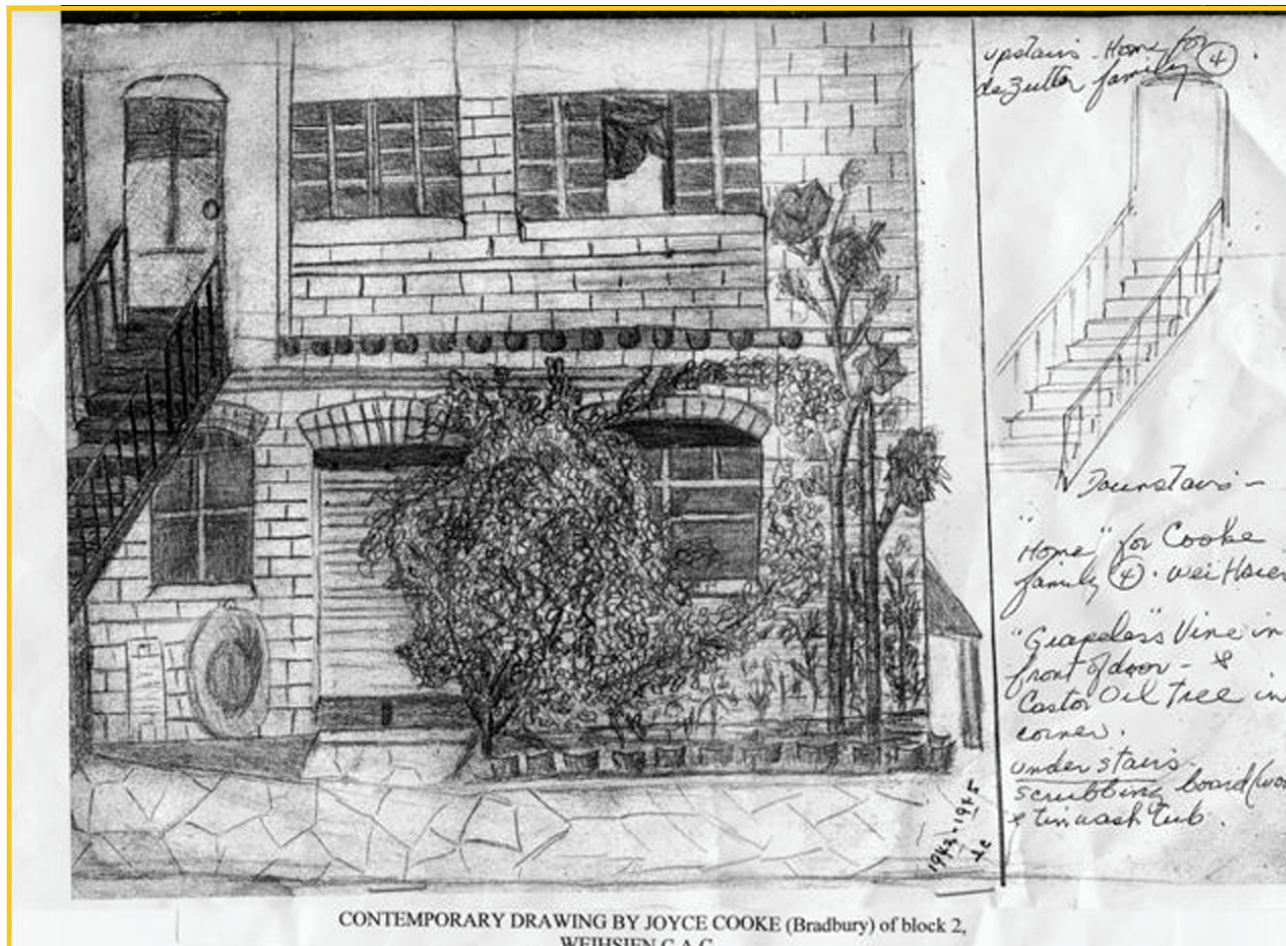 upstairs - Home for
de Zutter family ④.
Downstairs -
"Home" for Cooke
family ④. Wei Hsien
"Grapeless" Vine in
front of door - &
Castor Oil Tree in
corner.
under stairs.
scrubbing board
& tin wash tub.
1943-1945
JC
CONTEMPORARY DRAWING BY JOYCE COOKE (Bradbury) of block 2,
WEIHSIEN C.A.C.